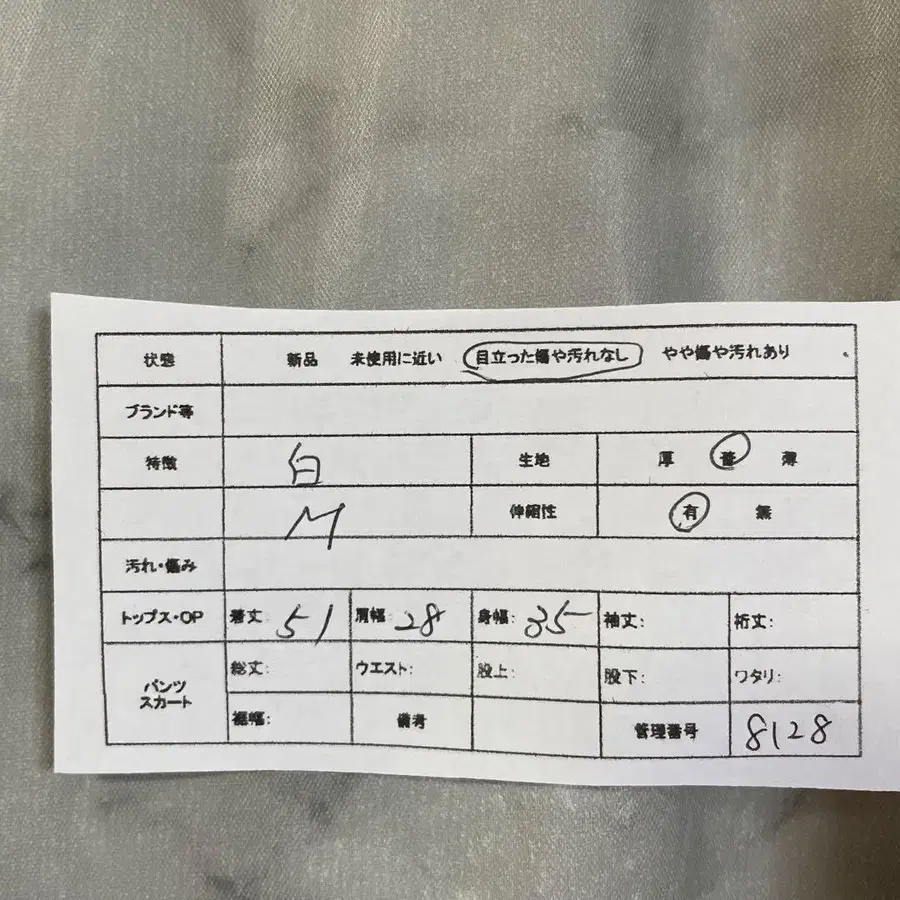 状態 新品 未使用に近い 目立った傷や汚れなし やや傷や汚れあり
ブランド等
特徴 白 生地 厚 普 薄
M 伸縮性 有 無
汚れ・傷み
トップス・OP 着丈: 51 肩幅: 28 身幅: 35 袖丈: 裄丈:
パンツ スカート 総丈: ウエスト: 股上: 股下: ワタリ:
裾幅: 備考 管理番号 8128